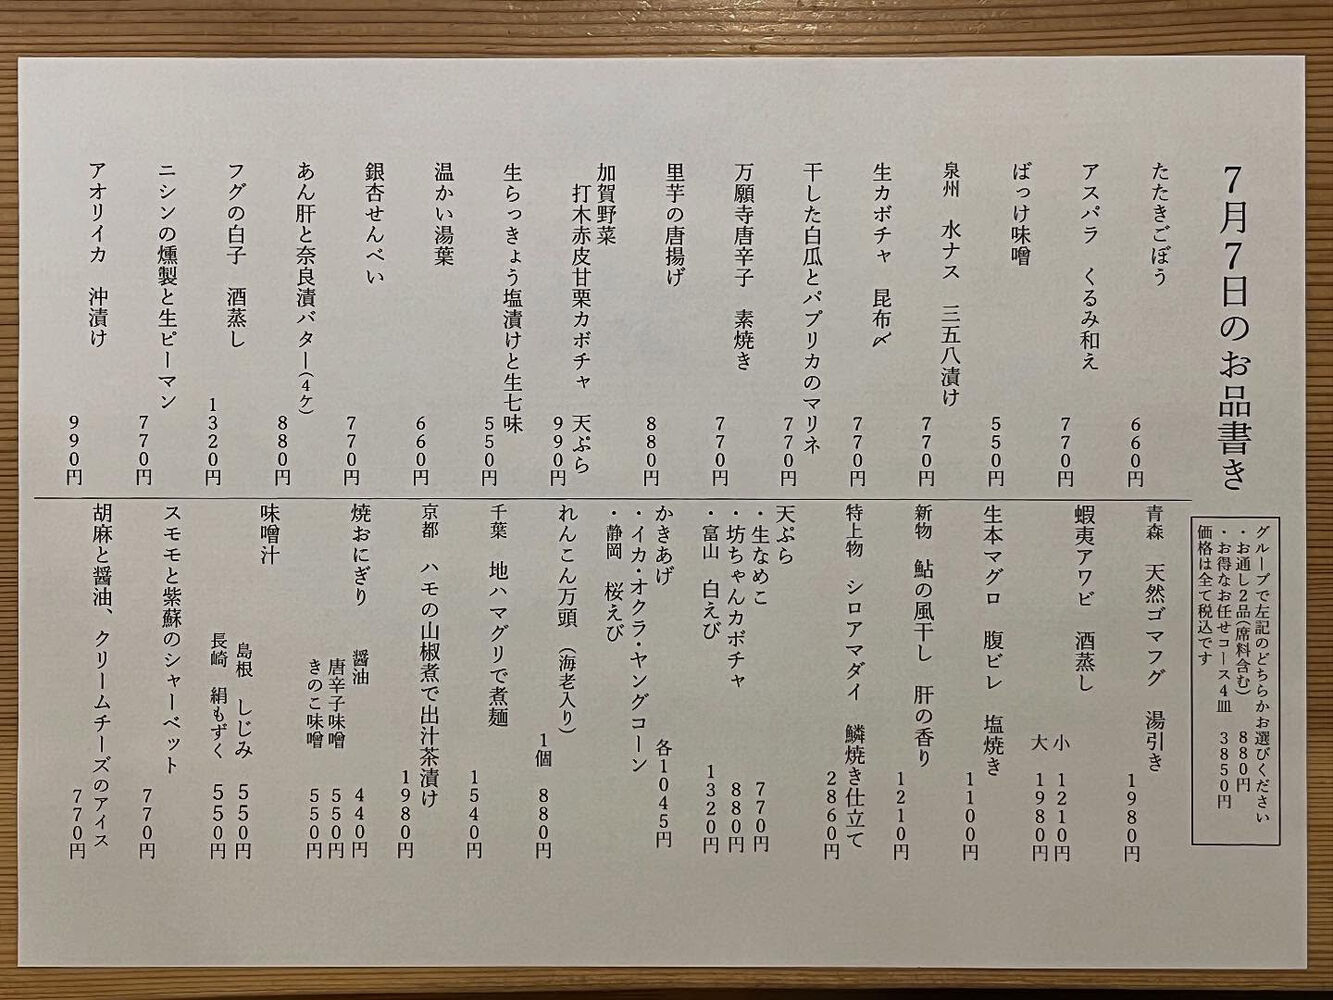 7月7日のお品書き
グループで左記のどちらかお選びください
・お通し2品(席料含む) 880円
・お得なお任せコース4皿 3850円
価格は全て税込です
たたきごぼう 660円
アスパラ くるみ和え 770円
ばっけ味噌 550円
泉州 水ナス 三五八漬け 770円
生カボチャ 昆布〆 770円
干した白瓜とパプリカのマリネ 770円
万願寺唐辛子 素焼き 770円
里芋の唐揚げ 880円
加賀野菜
打木赤皮甘栗カボチャ 天ぷら 990円
生らっきょう塩漬けと生七味 550円
温かい湯葉 660円
銀杏せんべい 770円
あん肝と奈良漬バター(4ケ) 880円
フグの白子 酒蒸し 1320円
ニシンの燻製と生ピーマン 770円
アオリイカ 沖漬け 990円
青森 天然ゴマフグ 湯引き 1980円
蝦夷アワビ 酒蒸し
小 1210円
大 1980円
生本マグロ 腹ビレ 塩焼き 1100円
新物 鮎の風干し 肝の香り 1210円
特上物 シロアマダイ 鱗焼き仕立て 2860円
天ぷら
・生なめこ 770円
・坊ちゃんカボチャ 880円
・富山 白えび 1320円
かきあげ 各1045円
・イカ・オクラ・ヤングコーン
・静岡 桜えび
れんこん万頭 (海老入り) 1個 880円
千葉 地ハマグリで煮麺 1540円
京都 ハモの山椒煮で出汁茶漬け 1980円
焼おにぎり 醤油 440円
唐辛子味噌 550円
きのこ味噌 550円
味噌汁
島根 しじみ 550円
長崎 絹もずく 550円
スモモと紫蘇のシャーベット 770円
胡麻と醤油、クリームチーズのアイス 770円